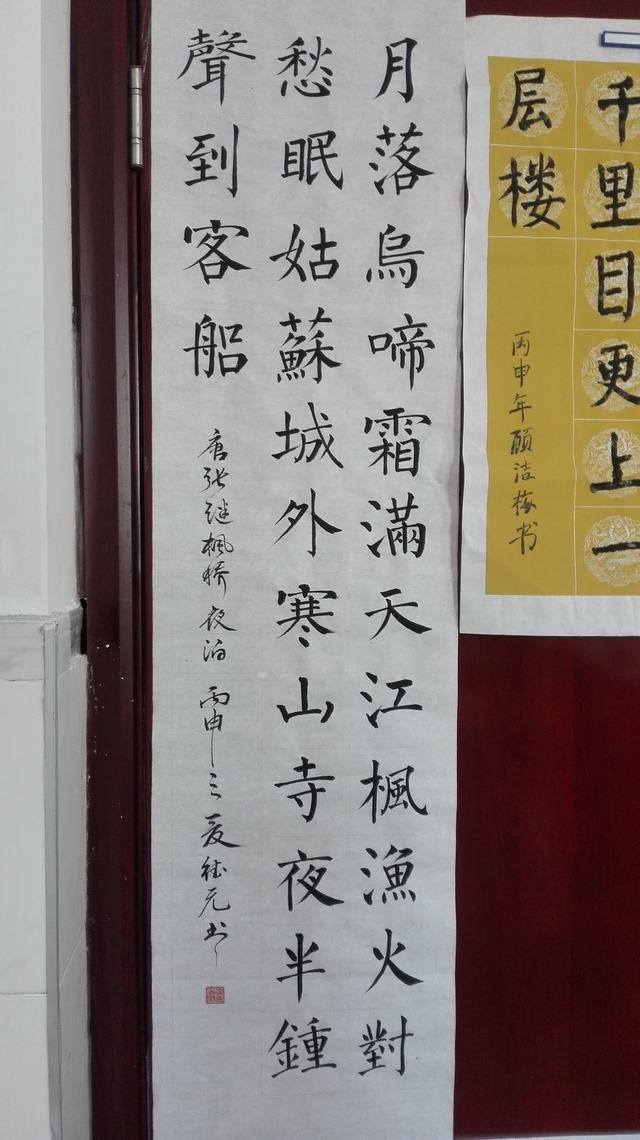 千里目更上一
层楼
丙申年顾洁梅书
月落烏啼霜滿天江楓漁火對
愁眠姑蘇城外寒山寺夜半鍾
聲到客船
唐张继枫桥夜泊 丙申之夏德元书